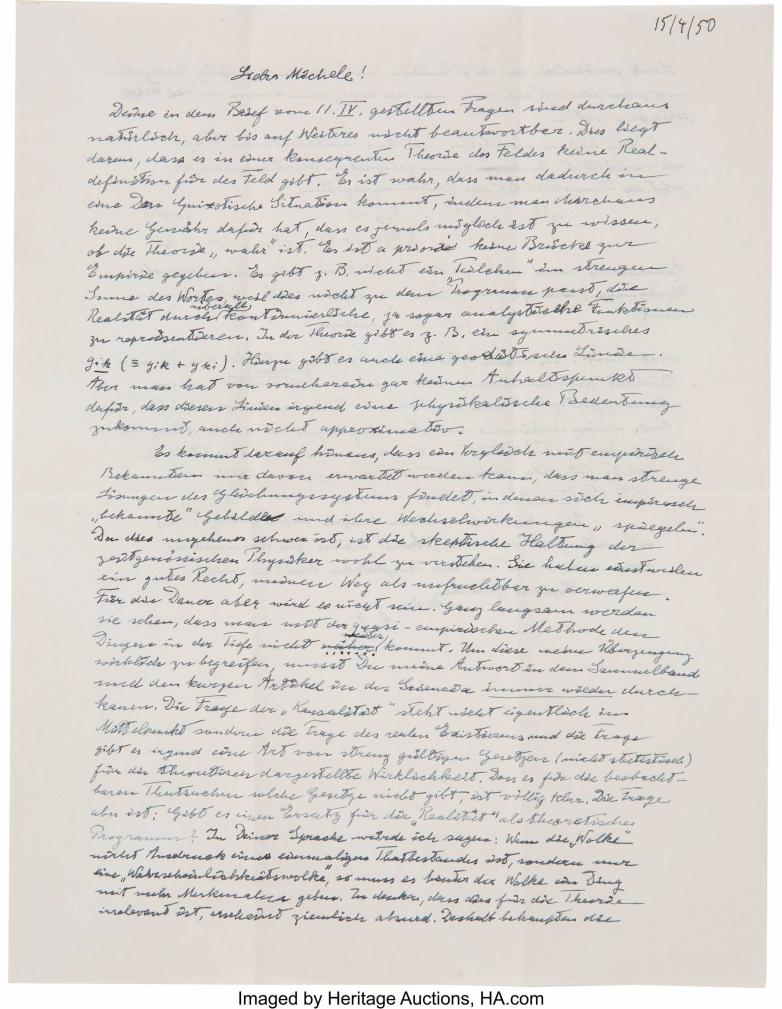 15/4/50
Lieber Michele!
Deine in dem Brief vom 11. IV. gestellten Fragen sind durchaus
natürlich, aber bis auf Weiteres nicht beantwortbar. Dies liegt
daran, dass es in einer konsequenten Theorie des Feldes keine Real-
definition für das Feld gibt. Es ist wahr, dass man dadurch in
eine Don Quixotische Situation kommt, indem man durchaus
keine Gewähr dafür hat, dass es jemals möglich ist zu wissen,
ob die Theorie „wahr" ist. Es ist a priori keine Brücke zur
Empirie gegeben. Es gibt z. B. nicht ein „Teilchen" im strengen
Sinne des Wortes, weil dies nicht zu dem Programm passt, die
Realität durch überall kontinuierliche, ja sogar analytische Funktionen
zu repräsentieren. In der Theorie gibt es z. B. ein symmetrisches
gik (≡ gik + gki). Hierzu gibt es auch eine geodätische Linie.
Aber man hat von vorneherein gar keinen Anhaltspunkt
dafür, dass diesen Linien irgend eine physikalische Bedeutung
zukommt, auch nicht approximativ.
Es kommt darauf hinaus, dass ein Vergleich mit empirisch
Bekanntem nur davon erwartet werden kann, dass man strenge
Lösungen des Gleichungssystems findet, in denen sich empirisch
„bekannte" Gebilde und ihre Wechselwirkungen „spiegeln".
Da dies ungeheuer schwer ist, ist die skeptische Haltung der
zeitgenössischen Physiker wohl zu verstehen. Sie haben einstweilen
ein gutes Recht, meinen Weg als unfruchtbar zu verwerfen.
Für die Dauer aber wird es nicht sein. Ganz langsam werden
sie sehen, dass man mit der quasi-empirischen Methode den
Dingen in der Tiefe nicht näher kommt. Um diese meine Überzeugung
wirklich zu begreifen, musst Du meine Antwort in dem Sammelband
und den kurzen Artikel in der Sciencia immer wieder durch-
kauen. Die Frage der „Kausalität" steht nicht eigentlich im
Mittelpunkt sondern die Frage des realen Existierens und die Frage
gibt es irgend eine Art von streng gültigen Gesetzen (nicht statistisch)
für die theoretisch dargestellte Wirklichkeit. Dass es für die beobacht-
baren Thatsachen solche Gesetze nicht gibt, ist völlig klar. Die Frage
aber ist: Gibt es einen Ersatz für die „Realität" als theoretisches
Programm? In Deiner Sprache würde ich sagen: Wenn die „Wolke"
nicht Ausdruck eines einmaligen Thatbestandes ist, sondern nur
eine „Wahrscheinlichkeitswolke", so muss es hinter der Wolke ein Ding
mit mehr Merkmalen geben. Zu denken, dass dies für die Theorie
irrelevant ist, erscheint ziemlich absurd. Deshalb behaupten die
Imaged by Heritage Auctions, HA.com